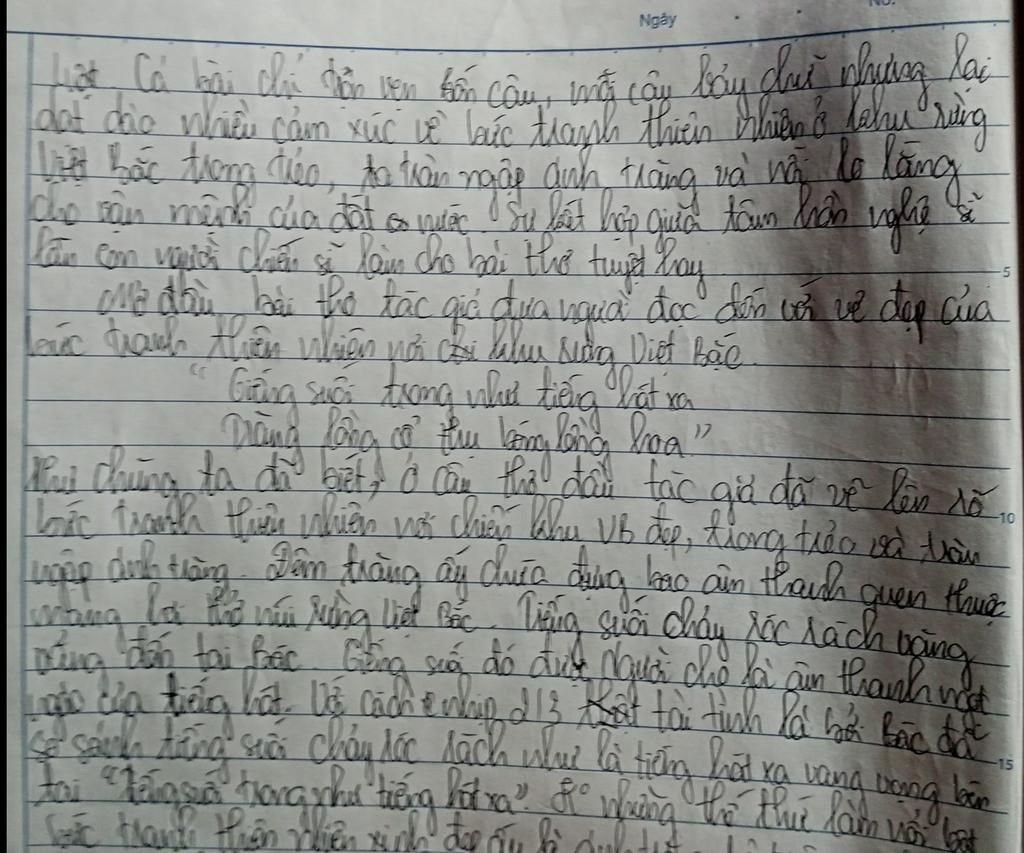 Ngày No:
Cả bài chỉ vỏn vẹn bốn câu, mỗi câu bảy chữ nhưng lại
dạt dào nhiều cảm xúc về bức tranh thiên nhiên ở khu rừng
Việt Bắc trong tréo, tràn ngập ánh trăng và nỗi lo lắng
cho vận mệnh của đất nước. Sự kết hợp giữa tâm hồn nghệ sĩ
lẫn con người chiến sĩ làm cho bài thơ tuyệt hay
5
Mở đầu bài thơ tác giả đưa người đọc đến với vẻ đẹp của
bức tranh thiên nhiên nơi khu rừng Việt Bắc.
"Tiếng suối trong như tiếng hát xa
Trăng lồng cổ thụ bóng lồng hoa"
chúng ta đã biết, ở câu thơ đầu tác giả đã vẽ lên rõ
bức tranh thiên nhiên nơi chiến khu VB đẹp, trong trẻo và tràn
10
ngập ánh trăng. Đêm trăng ấy chứa đựng bao âm thanh quen thuộc
mang lại núi rừng Việt Bắc. Tiếng suối chảy róc rách văng
vẳng đến tai Bác. Tiếng suối đó được Người cho là âm thanh
của tiếng hát. Với cách nhịp 2/3 thật tài tình là bởi Bác đã
so sánh tiếng suối chảy róc rách như là tiếng hát xa vang vọng bên
15
tai "tiếng suối trong như tiếng hát xa". thứ làm nổi bật
bức tranh thiên nhiên xinh đẹp ấy là